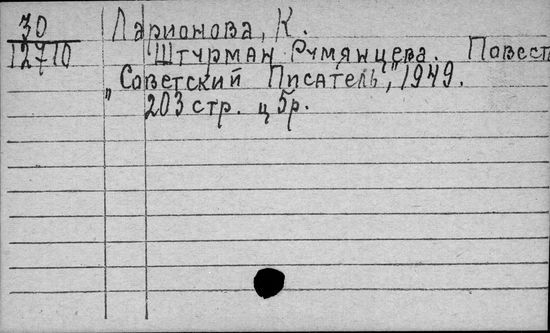 30
12710
Ларионова, К.
Штурман Румянцева. Повест
„Советский Писатель", 1949.
203 стр. ц 5р.